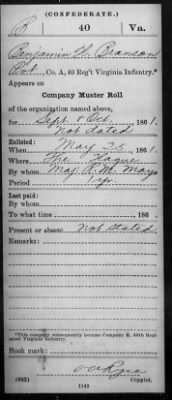 (CONFEDERATE.)
B 40 Va.
Benjamin H. Branson
Pvt, Co. A, 40 Reg't Virginia Infantry.*
Appears on
Company Muster Roll
of the organization named above,
for Sept & Oct, 1861.
Not dated
Enlisted:
When May 25, 1861.
Where The Hague
By whom Maj. R. M. Mayo
Period 1 yr
Last paid:
By whom
To what time , 186 .
Present or absent Not stated
Remarks:
*This company subsequently became Company K, 40th Regiment Virginia Infantry.
Book mark:
(642) Copyist.